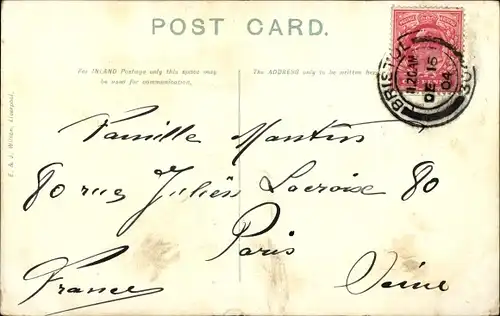 POST CARD.
For INLAND Postage only this space may
be used for communication.
The ADDRESS only to be written here
BRISTOL
11.20AM
DE 16
04
E. & J. Wilson, Liverpool.
Famille Martins
80 rue Julien Lacroise 80
Paris
France
Seine